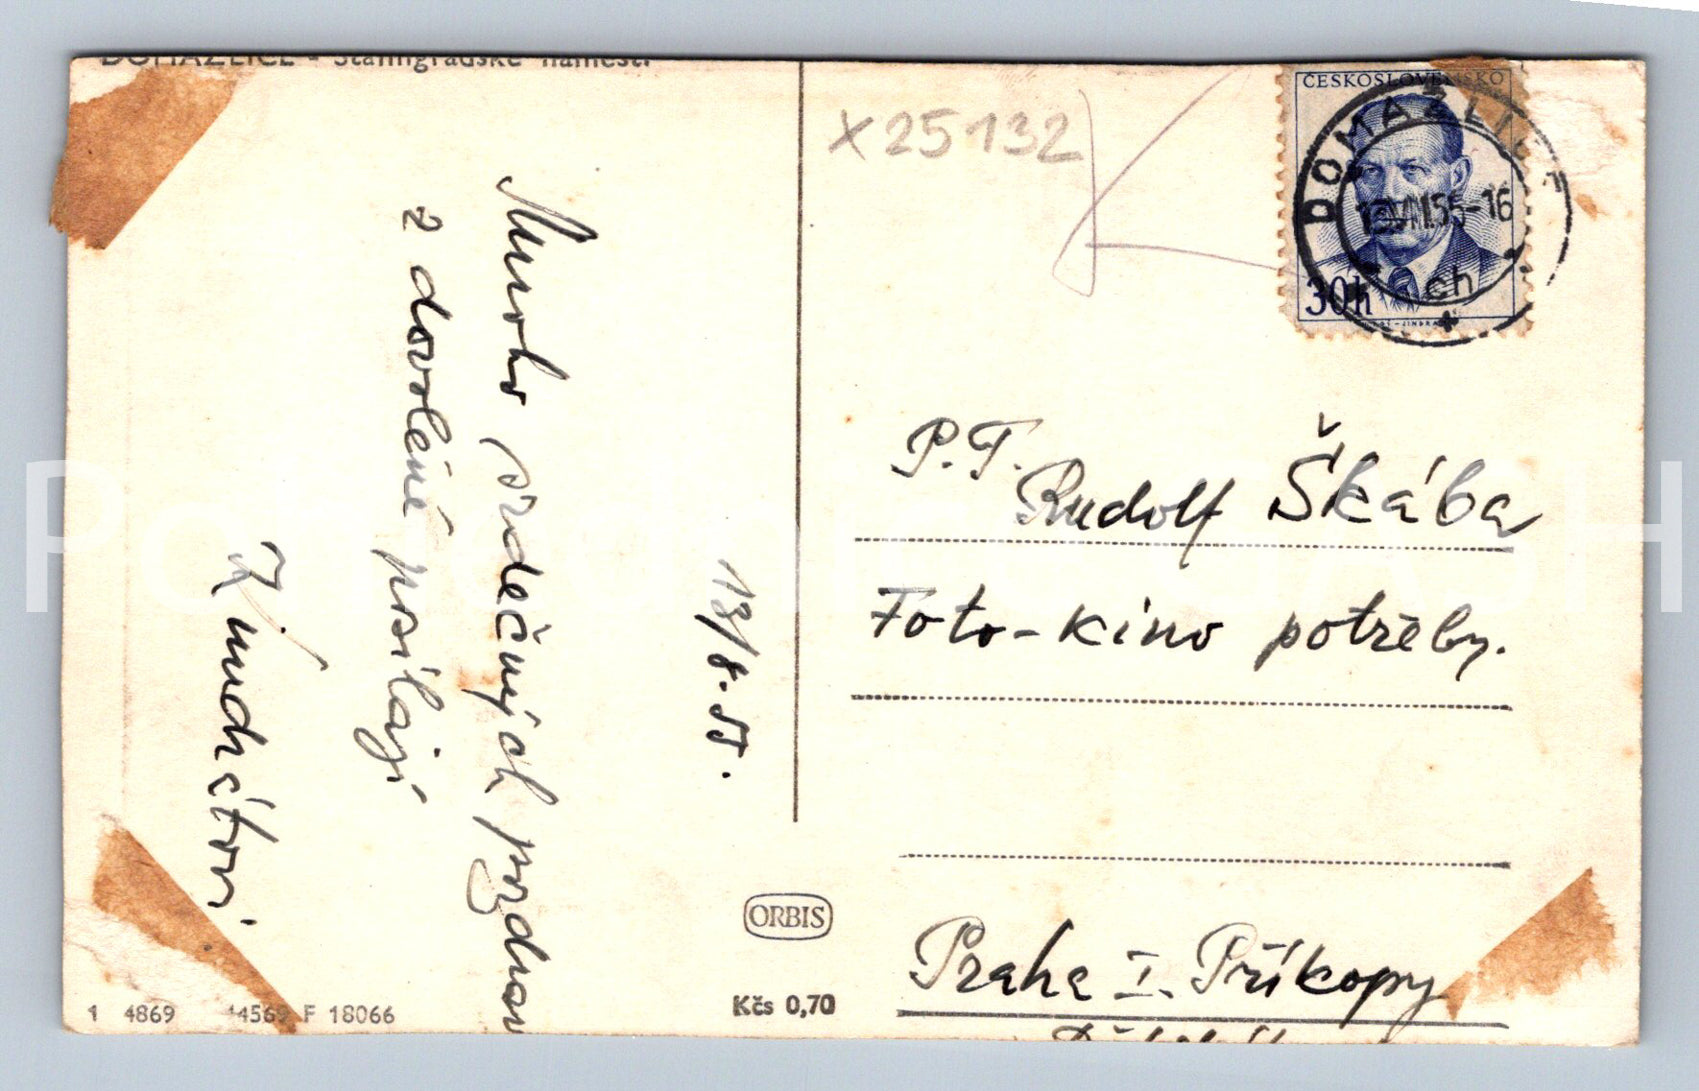 DOMAŽLICE - Stalingradské náměstí
X25132
ČESKOSLOVENSKO
DOMAŽLICE
55-16
ch
30h
Mnoho srdečných pozdravů
z dovolené posílají
13/8.55.
P.T.
Rudolf Škába
Foto-kino potřeby.
Praha I. Příkopy
ORBIS
Kčs 0,70
1 4869 F 18066